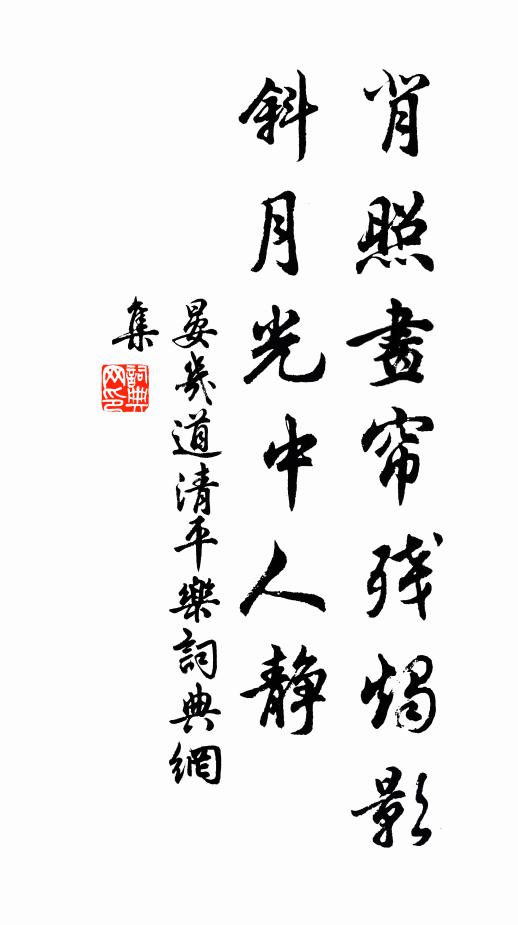 背照畫帘残燭影
斜月光中人静
晏幾道清平樂詞典網
集
詞典网印